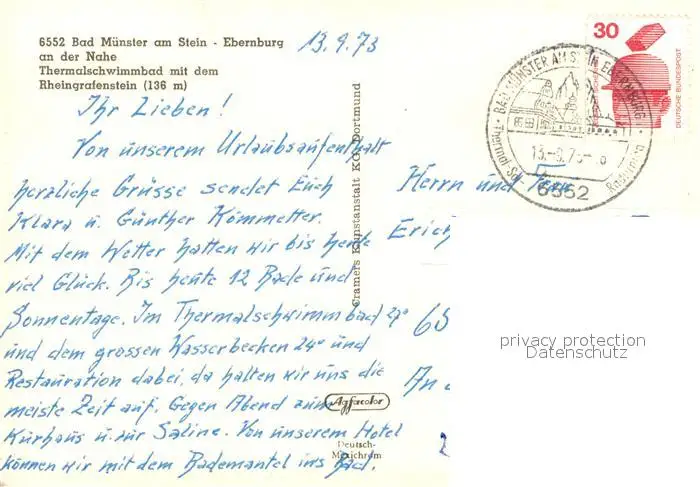 6552 Bad Münster am Stein - Ebernburg
an der Nahe
Thermalschwimmbad mit dem
Rheingrafenstein (136 m)
13.9.73
Ihr Lieben!
Von unserem Urlaubsaufenthalt
herzliche Grüsse sendet Euch
Klara u. Günther Kömmetter.
Mit dem Wetter hatten wir bis heute
viel Glück. Bis heute 12 Bade und
Sonnentage. Im Thermalschwimmbad 29°
und dem grossen Wasserbecken 24° und
Restauration dabei, da halten wir uns die
meiste Zeit auf. Gegen Abend zum
Kurhaus u. zur Saline. Von unserem Hotel
können wir mit dem Bademantel ins Bad.
Cramers Kunstanstalt KG, Dortmund
Agfacolor
Deutsch-
Mexichrom
30
DEUTSCHE BUNDESPOST
BAD MÜNSTER AM STEIN EBERNBURG
6552
Herrn und
Erich
privacy protection
Datenschutz